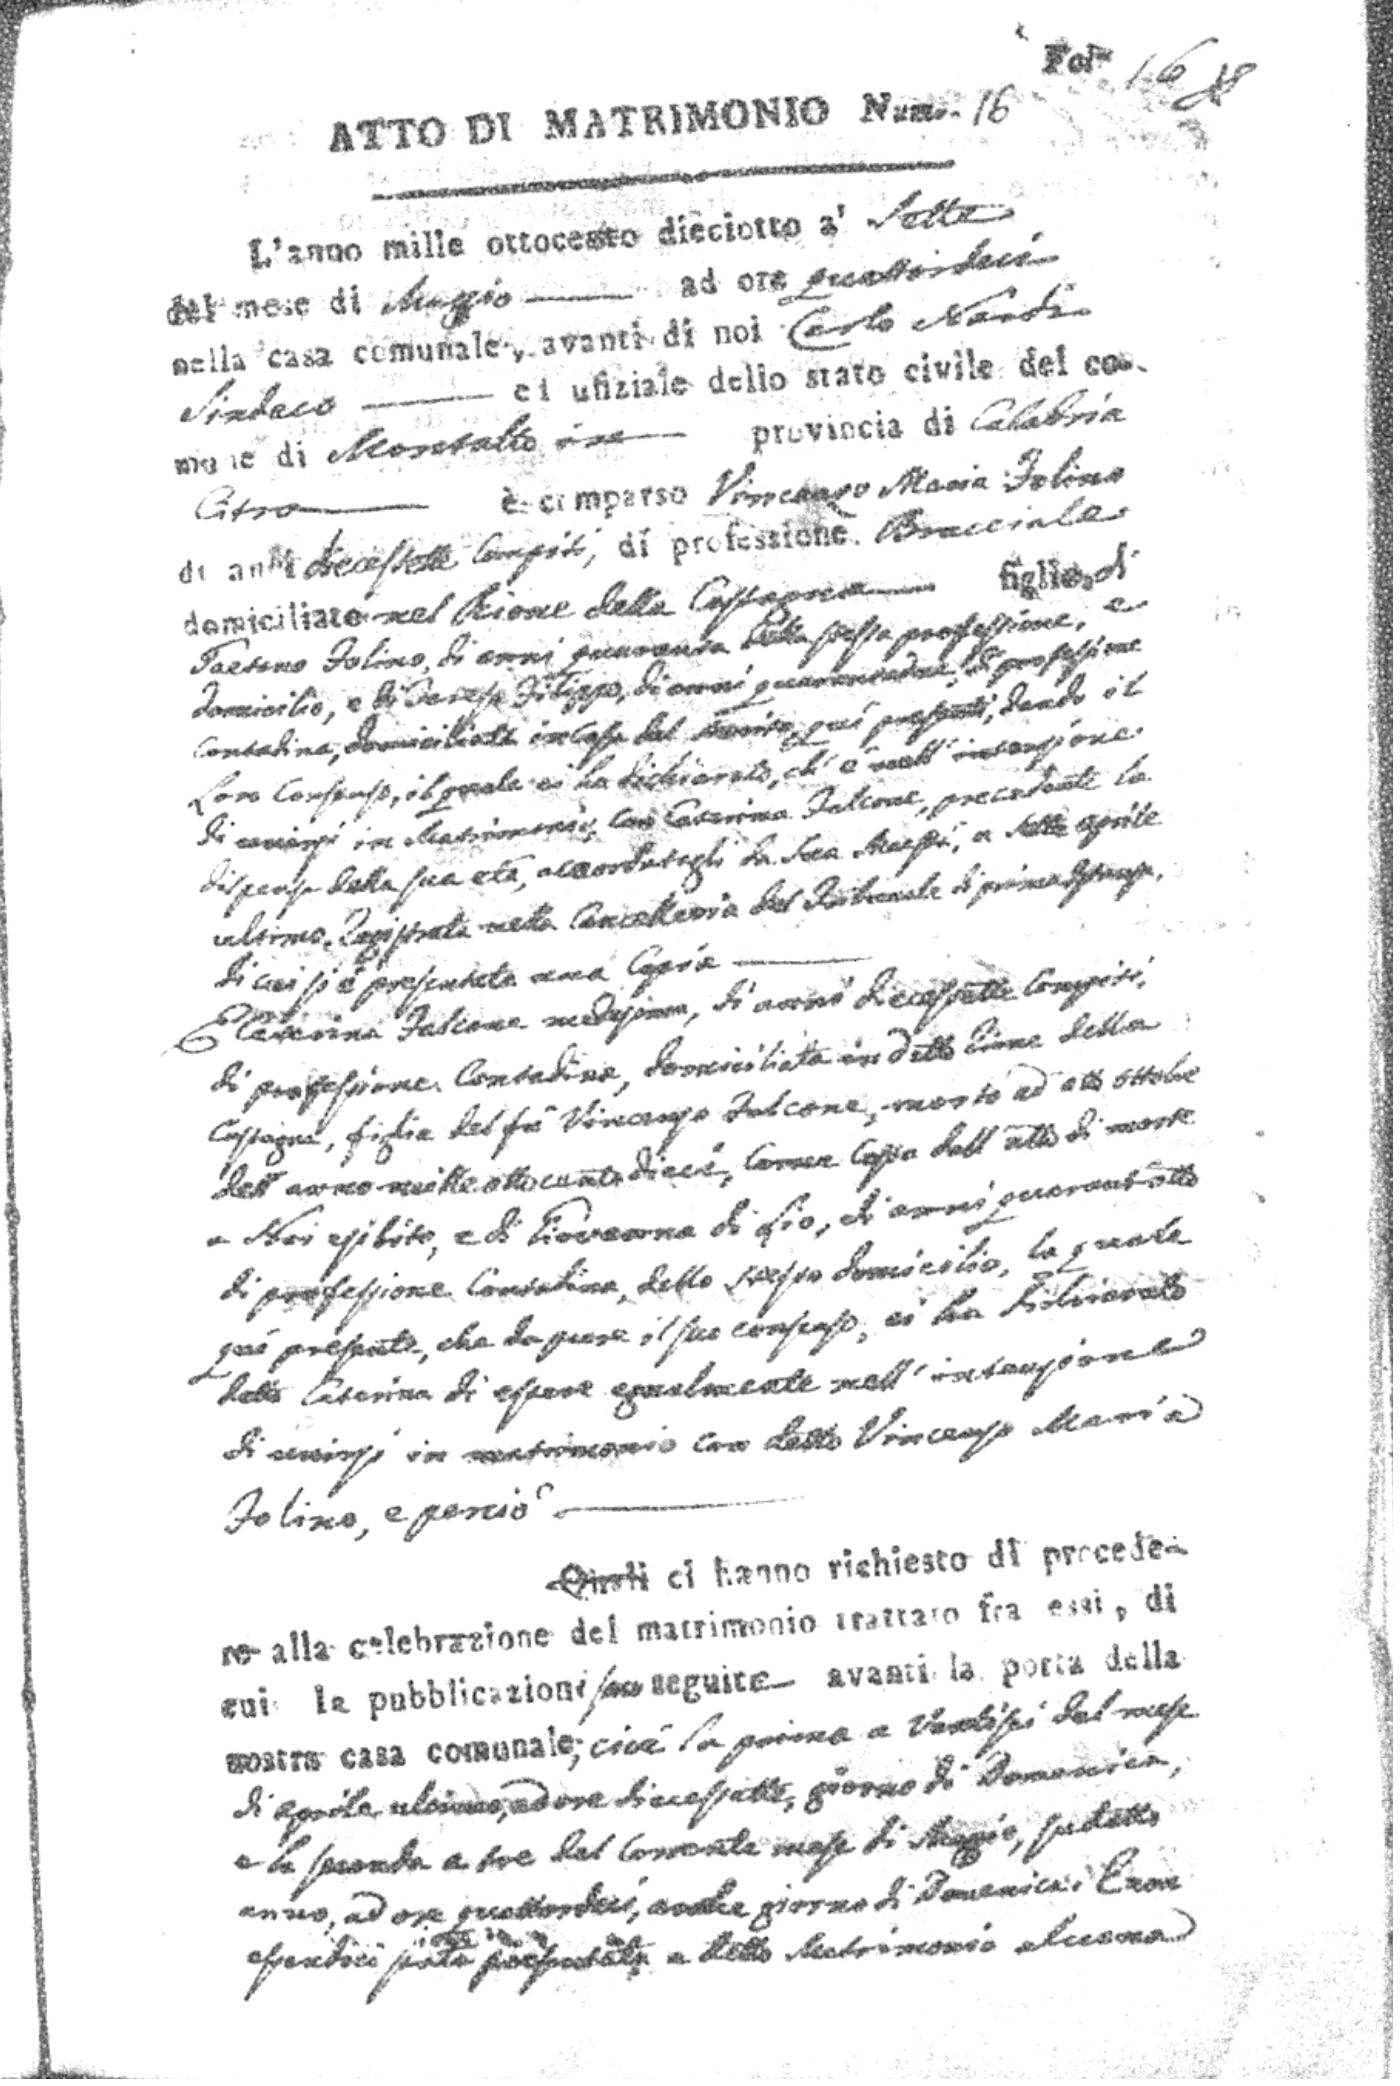 Fol.º 16
ATTO DI MATRIMONIO Num. 16
L'anno mille ottocento dieciotto a' Sette
del mese di Maggio ad ore quattordeci
nella casa comunale, avanti di noi Carlo Nardi
Sindaco ed ufiziale dello stato civile del co-
mune di Montalto in provincia di Calabria
Citra è comparso Vincenzo Maria Folino
di anni diecessette compiti, di professione Bracciale
domiciliato nel Rione della Castagna figlio di
Gaetano Folino, di anni quaranta della stessa professione, e
domicilio, e di Teresa Filippo, di anni quarantadue, di professione
Contadina, domiciliata in Casa del marito, quì presenti, dando il
loro Consenso, il quale ci ha dichiarato, ch'è nell'intenzione
di unirsi in Matrimonio, con Caterina Falcone, precedente la
dispensa della sua età, accordatagli da Sua Maestà, a sette aprile
ultimo, Registrata nella Cancelleria del Tribunale di prima Istanza,
di cui si è presentata una Copia
E Caterina Falcone medesima, di anni diecessette compiti,
di professione Contadina, domiciliata in detto Rione della
Castagna, figlia del fù Vincenzo Falcone, morto ad otto ottobre
dell'anno mille ottocento dieci, come Copia dell'atto di morte
a Noi esibito, e di Giovanna di Lio, di anni quarant'otto
di professione Contadina, dello stesso domicilio, la quale
quì presente, che da pure il suo consenso, ci ha dichiarato
detta Caterina di essere egualmente nell'intenzione
di unirsi in matrimonio con detto Vincenzo Maria
Folino, e perciò
Quali ci hanno richiesto di procede-
re alla celebrazione del matrimonio trattato fra essi, di
cui le pubblicazioni son seguite avanti la porta della
nostra casa comunale, cioè la prima a Ventisei del mese
di aprile ultimo, ad ore diecessette, giorno di Domenica,
e la seconda a tre del Corrente mese di Maggio, sudetto
anno, ad ore quattordeci, anche giorno di Domenica. E non
essendoci stata presentata a detto Matrimonio alcuna